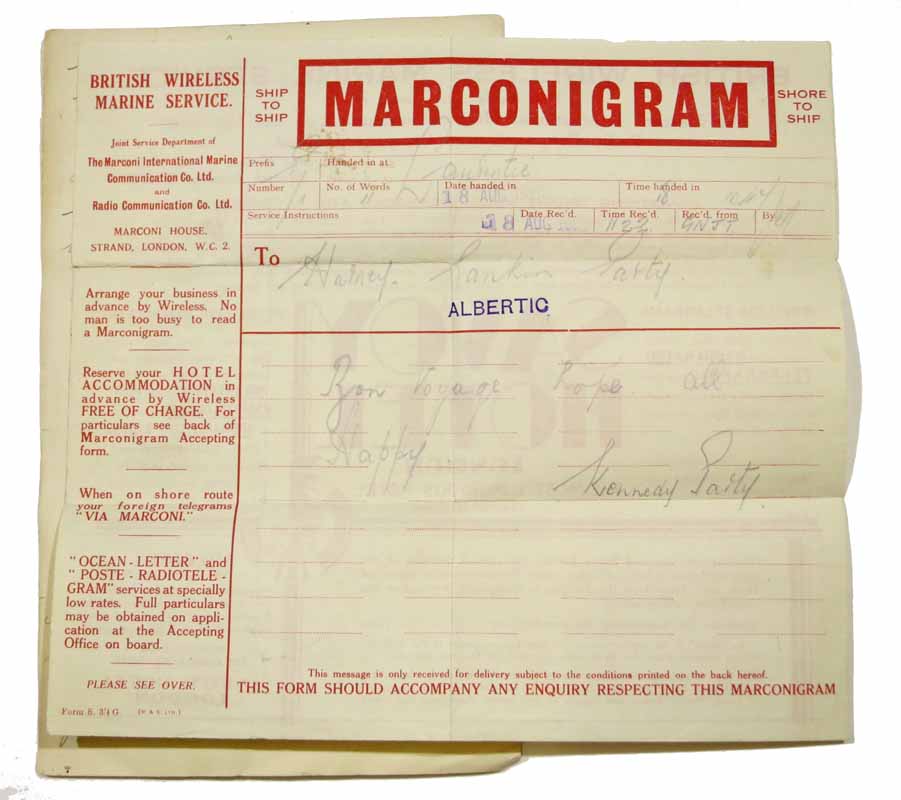 BRITISH WIRELESS
MARINE SERVICE.
Joint Service Department of
The Marconi International Marine
Communication Co. Ltd.
and
Radio Communication Co. Ltd.
MARCONI HOUSE,
STRAND, LONDON, W.C. 2.
SHIP
TO
SHIP
MARCONIGRAM
SHORE
TO
SHIP
Prefix Handed in at
Number No. of Words 11 Date handed in 18 AUG Time handed in
Service Instructions 18 AUG Date Rec'd. Time Rec'd. Rec'd. from By
To Party.
ALBERTIC
Bon Voyage hope all
Happy.
Kennedy Party
Arrange your business in
advance by Wireless. No
man is too busy to read
a Marconigram.
Reserve your HOTEL
ACCOMMODATION in
advance by Wireless
FREE OF CHARGE. For
particulars see back of
Marconigram Accepting
form.
When on shore route
your foreign telegrams
"VIA MARCONI."
"OCEAN-LETTER" and
"POSTE-RADIOTELE-
GRAM" services at specially
low rates. Full particulars
may be obtained on appli-
cation at the Accepting
Office on board.
PLEASE SEE OVER.
This message is only received for delivery subject to the conditions printed on the back hereof.
THIS FORM SHOULD ACCOMPANY ANY ENQUIRY RESPECTING THIS MARCONIGRAM